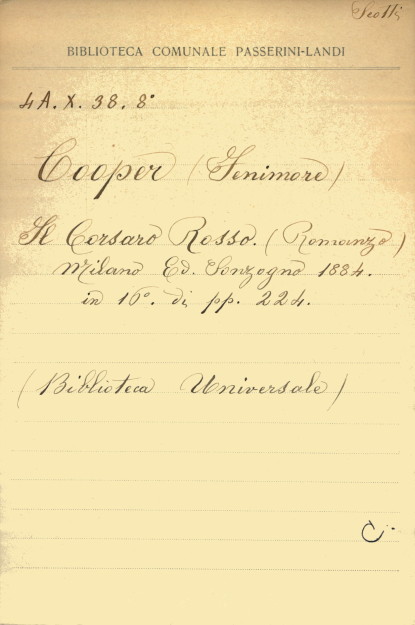 Scotti
BIBLIOTECA COMUNALE PASSERINI-LANDI
4A. X. 38. 8°
Cooper (Fenimore)
Il Corsaro Rosso. (Romanzo)
Milano Ed. Sonzogno 1884.
in 16°. di pp. 224.
(Biblioteca Universale)
C.